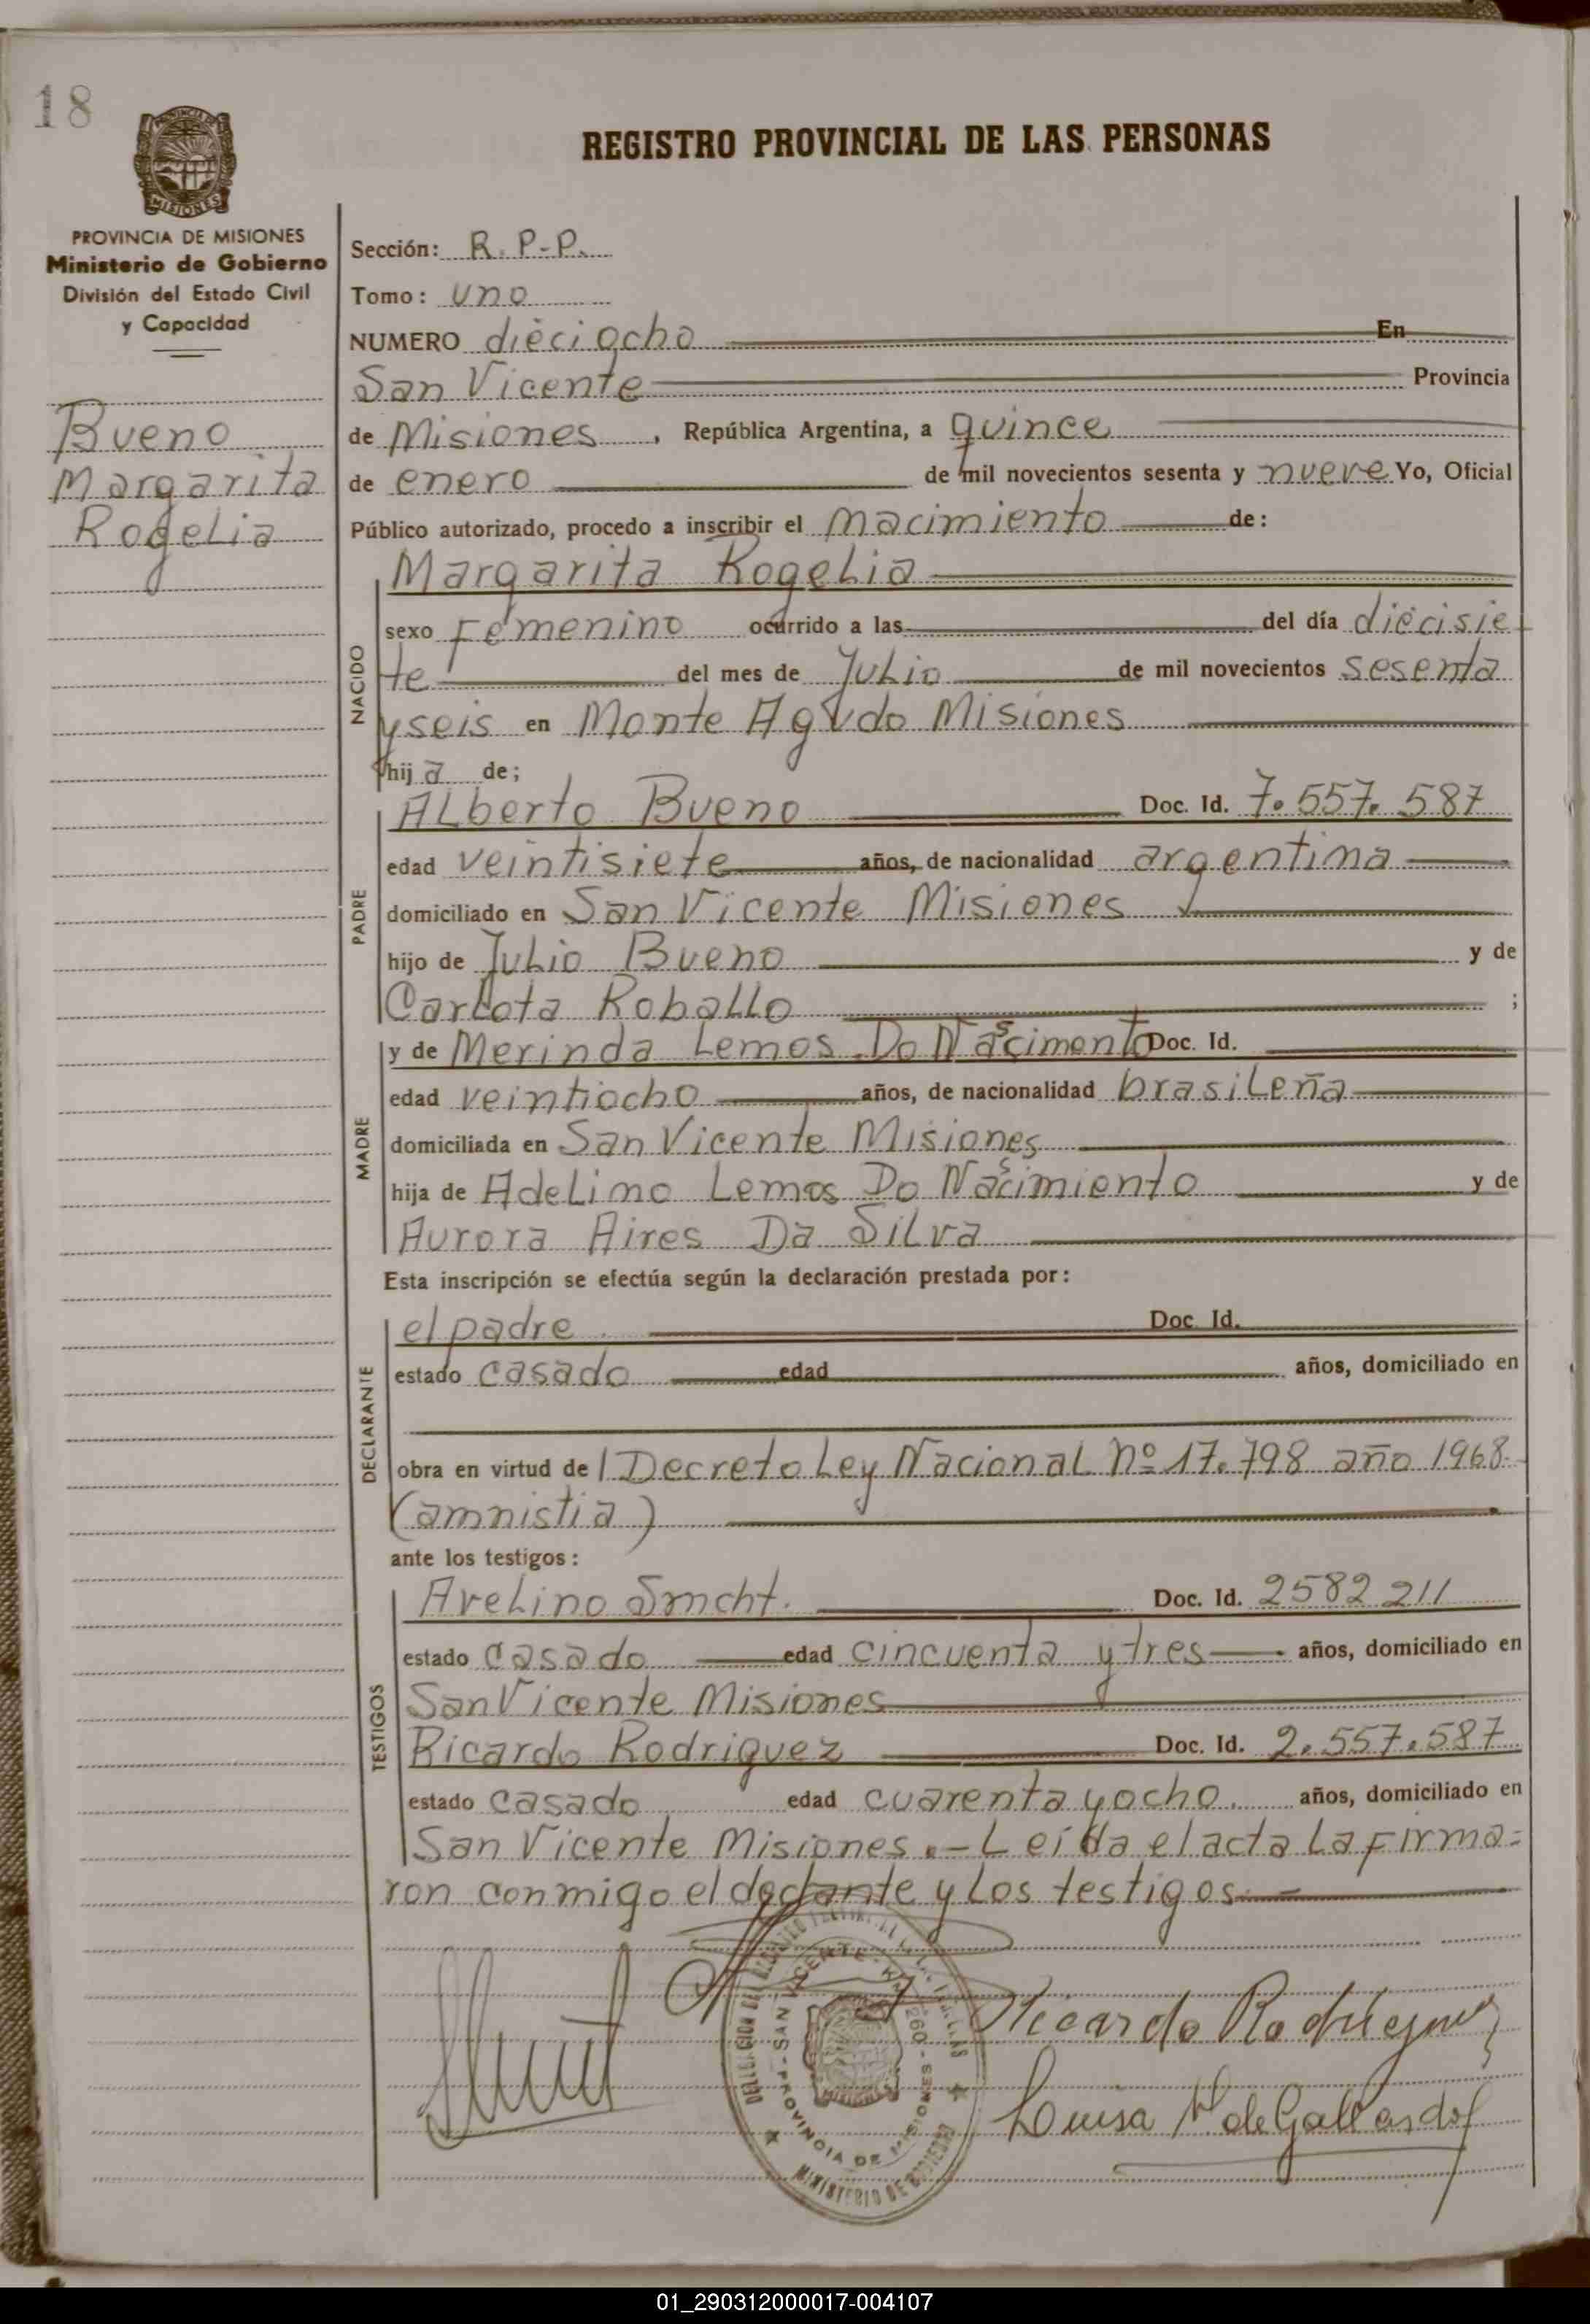 18
REGISTRO PROVINCIAL DE LAS PERSONAS
MISIONES
PROVINCIA DE MISIONES
Ministerio de Gobierno
División del Estado Civil
y Capacidad
Bueno
Margarita
Rogelia
Sección: R. P-P.
Tomo: uno
NUMERO dieciocho En
San Vicente Provincia
de Misiones, República Argentina, a quince
de enero de mil novecientos sesenta y nueve Yo, Oficial
Público autorizado, procedo a inscribir el nacimiento de:
Margarita Rogelia
NACIDO
sexo Femenino ocurrido a las del día diecisie
te del mes de Julio de mil novecientos sesenta
y seis en Monte Agudo Misiones
hija de;
PADRE
Alberto Bueno Doc. Id. 7.557.587
edad veintisiete años, de nacionalidad argentina
domiciliado en San Vicente Misiones
hijo de Julio Bueno y de
Carlota Roballo ;
MADRE
y de Merinda Lemos Do Nascimento Doc. Id.
edad veintiocho años, de nacionalidad brasileña
domiciliada en San Vicente Misiones
hija de Adelino Lemos Do Nascimiento y de
Aurora Aires Da Silva
Esta inscripción se efectúa según la declaración prestada por:
DECLARANTE
el padre Doc. Id.
estado casado edad años, domiciliado en
obra en virtud del Decreto Ley Nacional Nº 17.798 año 1968.
(amnistia)
ante los testigos:
TESTIGOS
Avelino Smcht. Doc. Id. 2582211
estado casado edad cincuenta y tres años, domiciliado en
San Vicente Misiones
Ricardo Rodriguez Doc. Id. 2.557.587
estado casado edad cuarenta y ocho. años, domiciliado en
San Vicente Misiones.- Leída el acta la firma=
ron conmigo el declante y los testigos
Ricardo Rodriguez
Luisa de Gallardo
SAN VICENTE
PROVINCIA DE MISIONES
MINISTERIO DE GOBIERNO
01_290312000017-004107